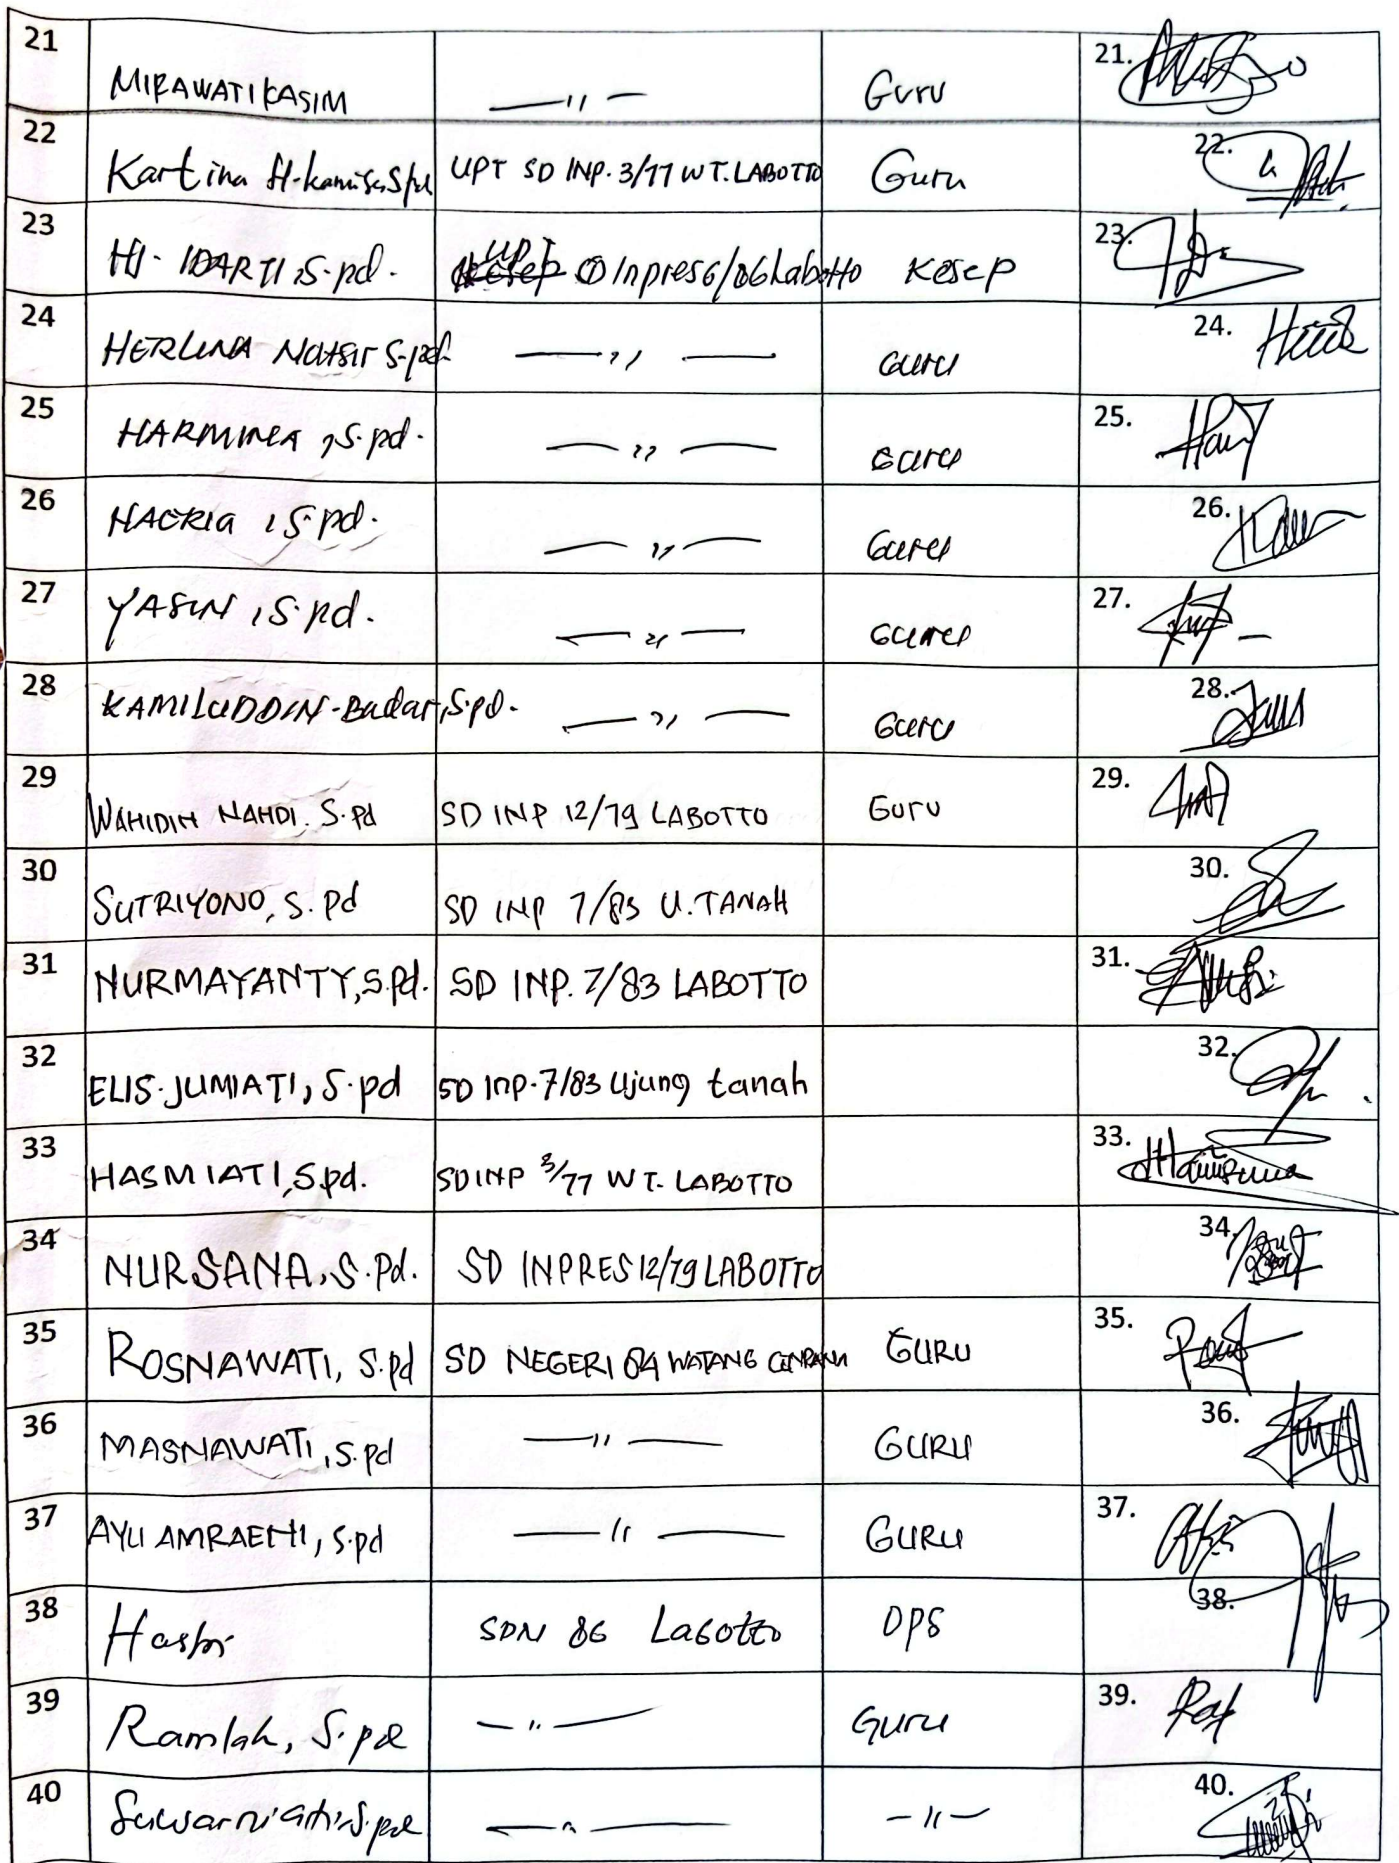 21 MIRAWATI KASIM —〃— Guru 21.
22 Kartina S/pd UPT SD INP. 3/77 WT. LABOTTO Guru 22.
23 HJ. IDARTI, S.pd. UPT Inpres 6/86 Labotto Kesep 23.
24 HERLINA NATSIR S.pd. —〃— Guru 24.
25 HARMINA, S.pd. —〃— Guru 25.
26 HAERIA, S.pd. —〃— Guru 26.
27 YASIN, S.pd. —〃— Guru 27.
28 KAMILUDDIN-Badar, S.pd. —〃— Guru 28.
29 WAHIDIN NAHDI. S.Pd SD INP 12/79 LABOTTO Guru 29.
30 SUTRIYONO, S.Pd SD INP 7/83 U.TANAH 30.
31 NURMAYANTY, S.Pd. SD INP. 7/83 LABOTTO 31.
32 ELIS JUMIATI, S.pd SD Inp.7/83 Ujung tanah 32.
33 HASMIATI, S.pd. SD INP 3/77 WT. LABOTTO 33.
34 NURSANA, S.Pd. SD INPRES 12/79 LABOTTO 34.
35 ROSNAWATI, S.pd SD NEGERI 84 WATANG CENRANA GURU 35.
36 MASNAWATI, S.pd —〃— GURU 36.
37 AYU AMRAENI, S.pd —〃— GURU 37.
38 SDN 86 Labotto OPS 38.
39 Ramlah, S.pd —〃— Guru 39.
40 Suwarniati, S.pd —〃— —〃— 40.